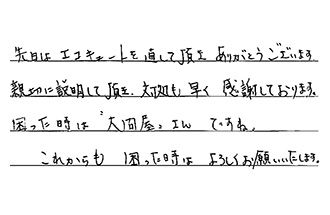 先日は エコキュートを 直して頂き ありがとうございます
親切に説明して頂き、対処も 早く 感謝しております。
困った時は "大問屋" さん ですね。
これからも 困った時は よろしくお願いいたします。